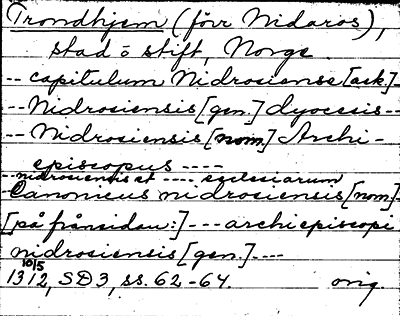 Trondhjem (förr Nidaros),
stad o stift, Norge
-- capitulum Nidrosiense [ack] --
-- Nidrosiensis [gen.] dyocesis --
-- Nidrosiensis [nom] Archi-
episcopus ----
-- nidrosiensis et ---- ecclesiarum
Canonicus nidrosiensis [nom] -
[på frånsidan:] --- archiepiscopi
nidrosiensis [gen.] ----
1312 10/5, SD3, ss. 62-64. orig.